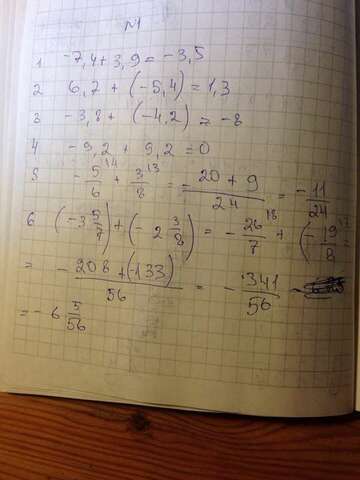 №1
1 -7,4+3,9=-3,5
2 6,7+(-5,4)=1,3
3 -3,8+(-4,2)=-8
4 -9,2+9,2=0
5 -5/6+3/8==20+9/24=-11/24
6 (-3 5/7)+(-2 3/8)=-26/7+(-19/8
=-208+(-133)/56=-341/56
=-6 5/56